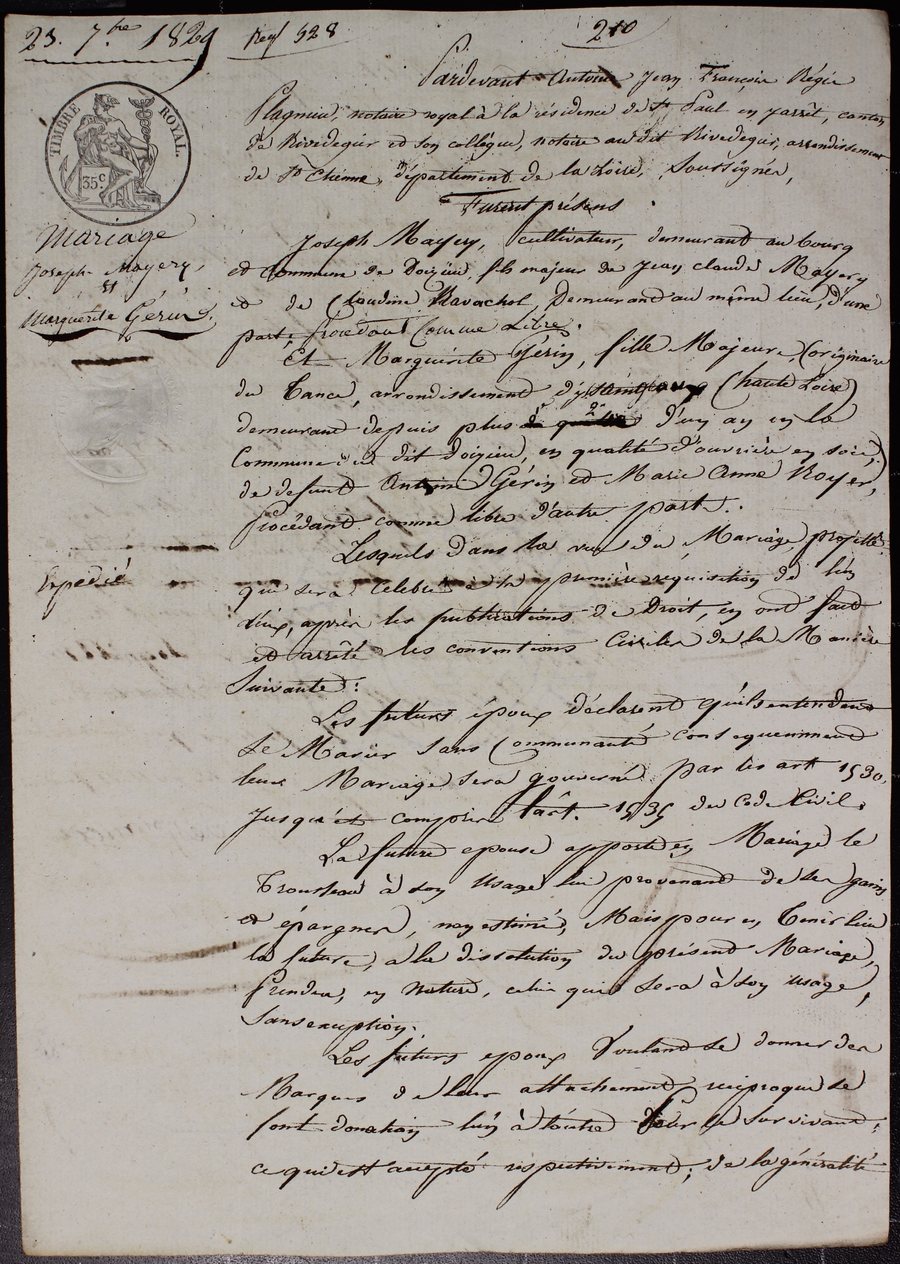 23. 7bre 1829
Regt 528
210
TIMBRE ROYAL.
35c
Mariage
Joseph Mayery
et
Marguerite Gérin
Expédié
Pardevant Antoine Jean François Régis
notaire royal à la résidence de St Paul en jarrêt, canton
de Rivedegier et son collègue, notaire au dit Rivedegier, arrondissement
de St Etienne, département de la Loire, soussignés,
Furent présens
Joseph Mayery, cultivateur, demeurant au bourg
et commune de Doizieu, fils majeur de Jean claude Mayery
et de Claudine Ravachol, Demeurant au même lieu, d'une
part, procédant comme Libre.
Et Marguerite Gérin, fille Majeure, originaire
du Tance, arrondissement d'yssingeaux (haute Loire)
demeurant depuis plus d'un an en la
Commune du dit Doizieu, en qualité d'ouvrière en soie,
de defunt Antoine Gérin et Marie Anne Royer,
procédant comme libre d'autre part.
Lesquels dans la vue du Mariage projetté
qui sera célébré à la première requisition de l'un
d'eux, après les publications de Droit, en ont fait
et arrêté les conventions Civiles de la Manière
Suivante :
Les futurs époux déclarent qu'ils entendent
se Marier sans Communauté consequemment
leur Mariage sera gouverné par les art 1530.
jusqu'et compris l'art. 1535 du Code Civil.
La future epouse apporte en Mariage le
Trousseau à son usage lui provenant de ses gains
et épargnes, non estimé, Mais pour en Tenir lieu
la future, à la dissolution du présent Mariage,
prendra, en Nature, celui qui sera à son usage,
Sans exception.
Les futurs epoux Voulant se donner des
Marques de leur attachement reciproque se
font donation l'un à l'autre pour le survivant,
ce qui est accepté respectivement, de la généralité